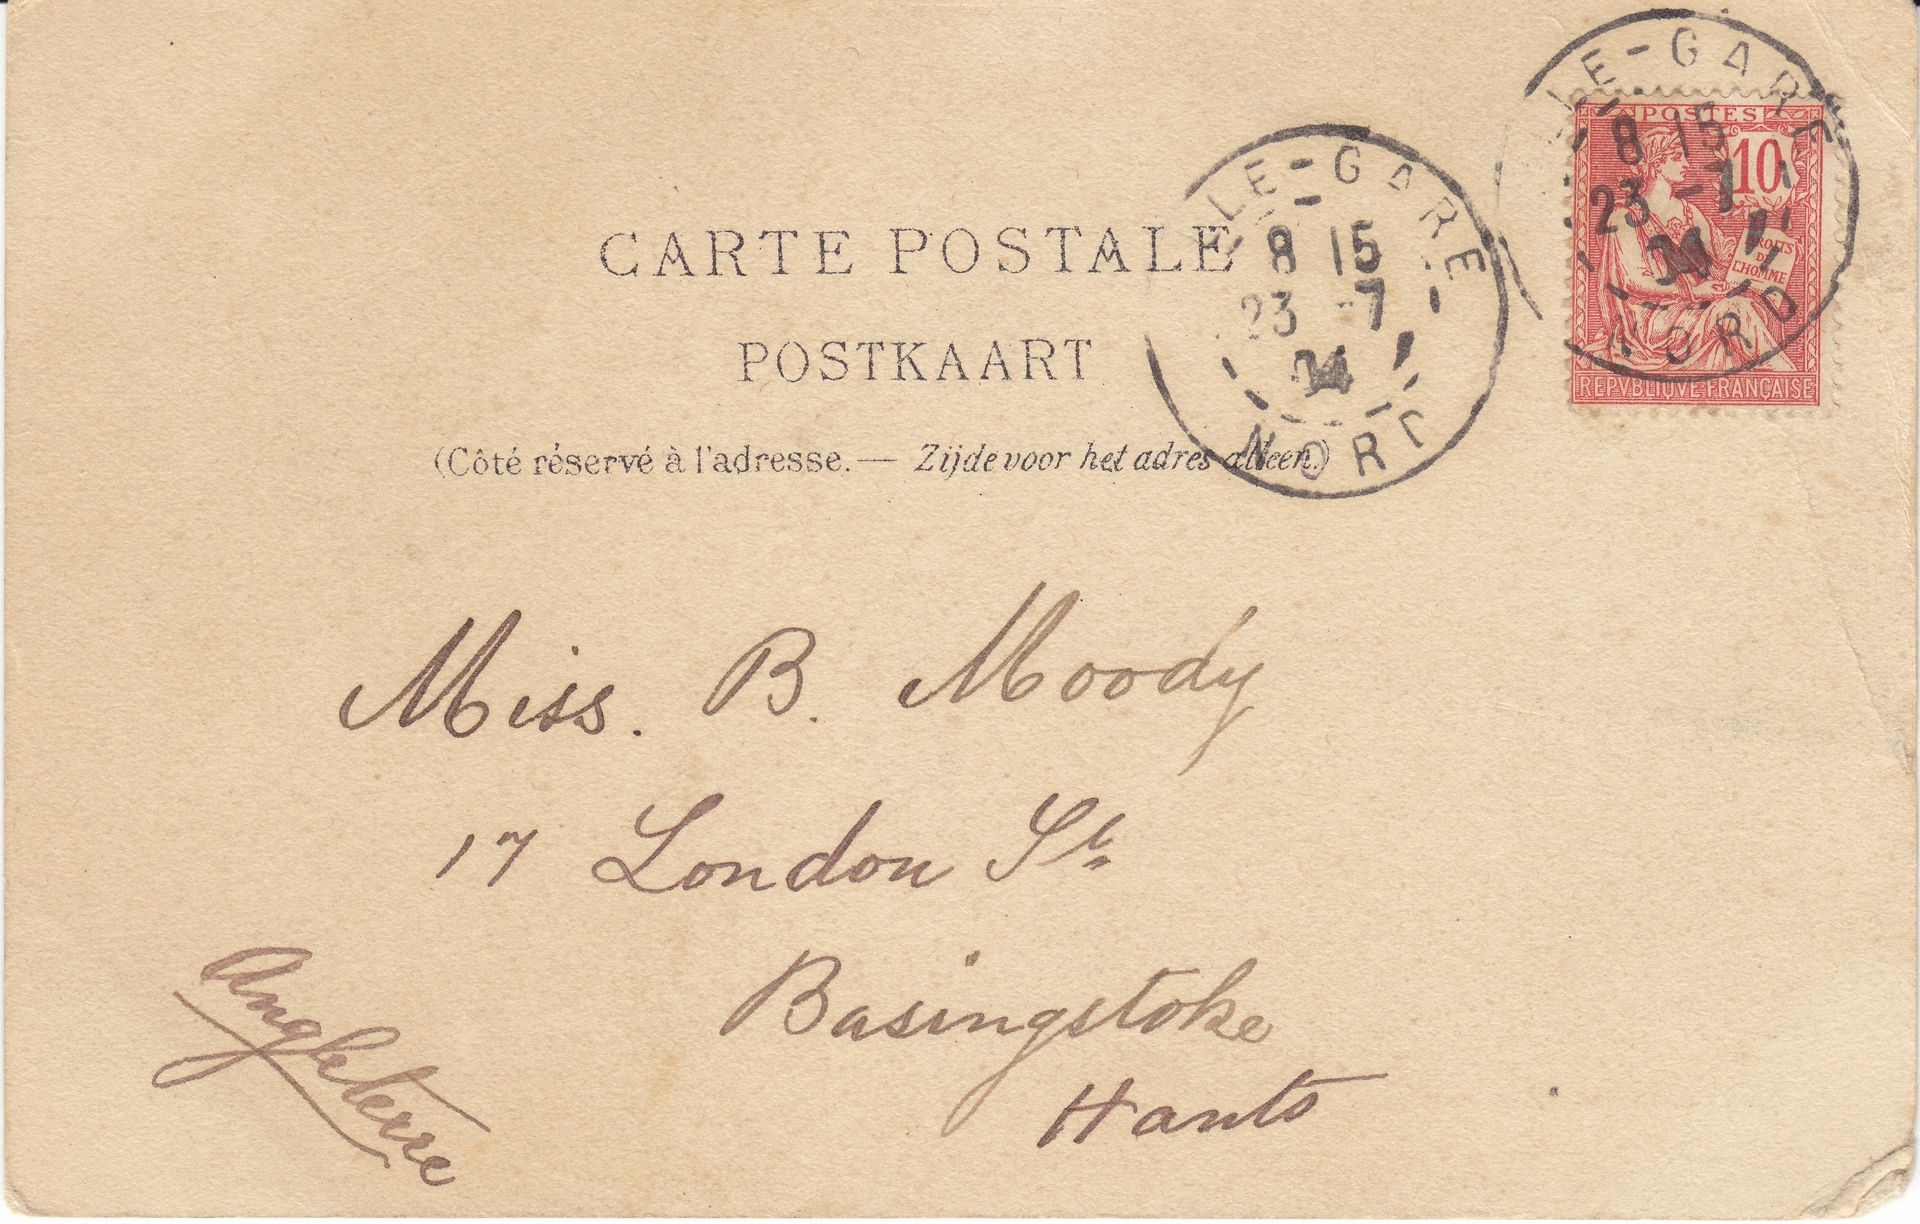 CARTE POSTALE
POSTKAART
(Côté réservé à l'adresse. — Zijde voor het adres alleen.)
LE-GARE
8 15
23 -7
04
NORD
LE-GARE
8 15
23 -7
04
NORD
POSTES
10
DROITS
DE
L'HOMME
REPVBLIQVE FRANÇAISE
Miss. B. Moody
17 London St.
Basingstoke
Hants
Angleterre